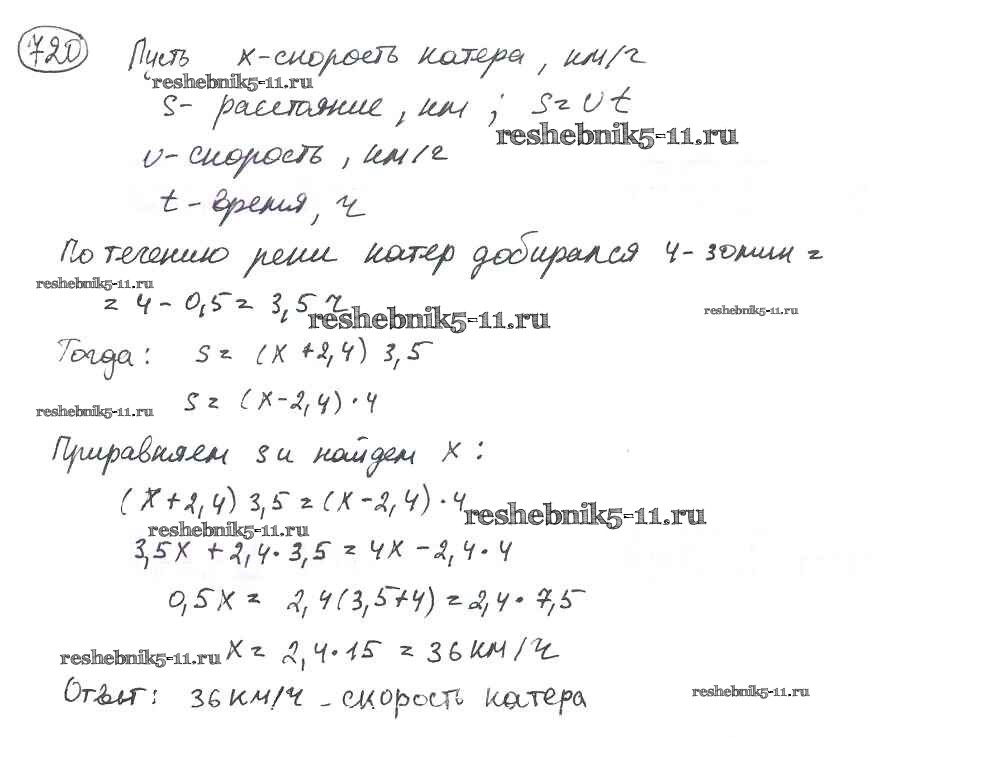 720 Пусть x-скорость катера, км/ч
reshebnik5-11.ru
S- расстояние, км; S=υt
reshebnik5-11.ru
υ-скорость, км/ч
t-время, ч
По течению реки катер добирался 4-30мин=
reshebnik5-11.ru
= 4-0,5= 3,5 ч
reshebnik5-11.ru
reshebnik5-11.ru
Тогда: S= (x+2,4) 3,5
S= (x-2,4)·4
reshebnik5-11.ru
Приравняем S и найдем x:
(x+2,4) 3,5=(x-2,4)·4
reshebnik5-11.ru
reshebnik5-11.ru
3,5x+2,4·3,5=4x-2,4·4
0,5x= 2,4(3,5+4)=2,4·7,5
reshebnik5-11.ru
x= 2,4·15 = 36 км/ч
Ответ: 36 км/ч - скорость катера
reshebnik5-11.ru